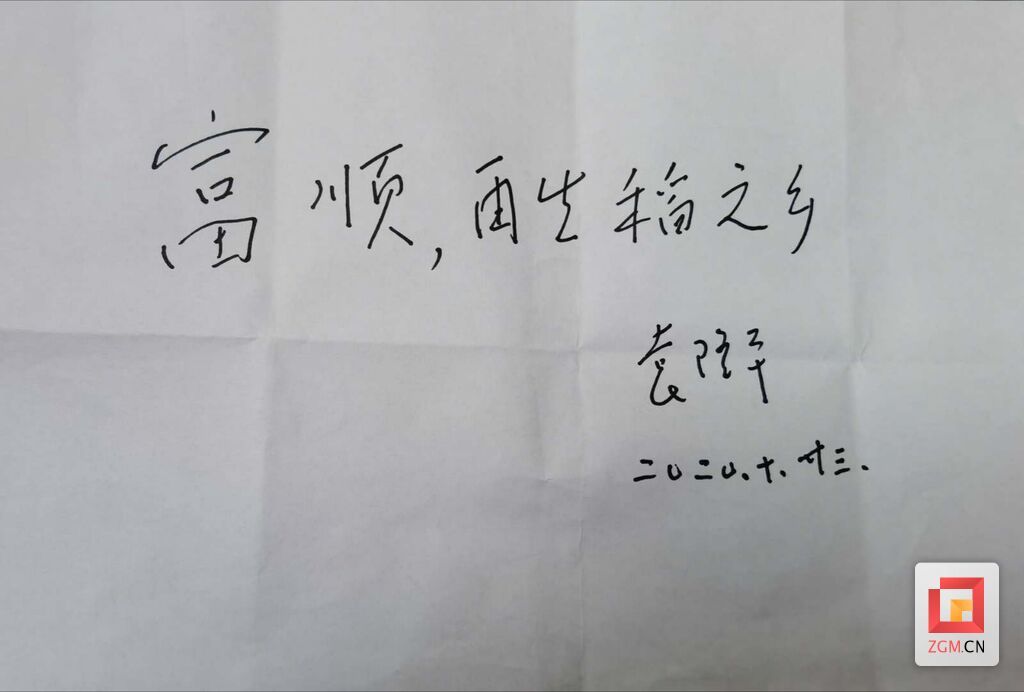 富顺,再生稻之乡
袁隆平
二〇二〇.十.廿三.
ZGM.CN